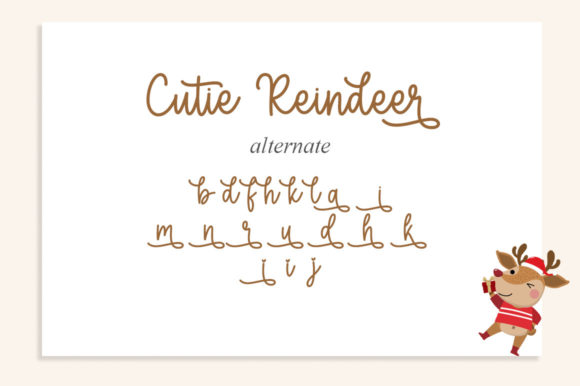 Cutie Reindeer
alternate
b d f h k l a i
m n r u d h k
i i j